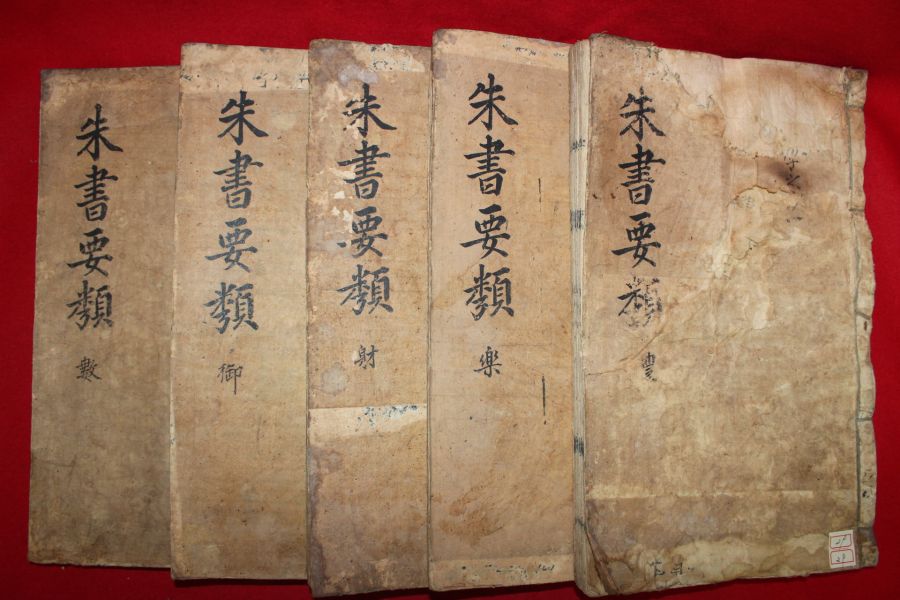 朱書要類
豊
朱書要類
楽
朱書要類
射
朱書要類
御
朱書要類
數